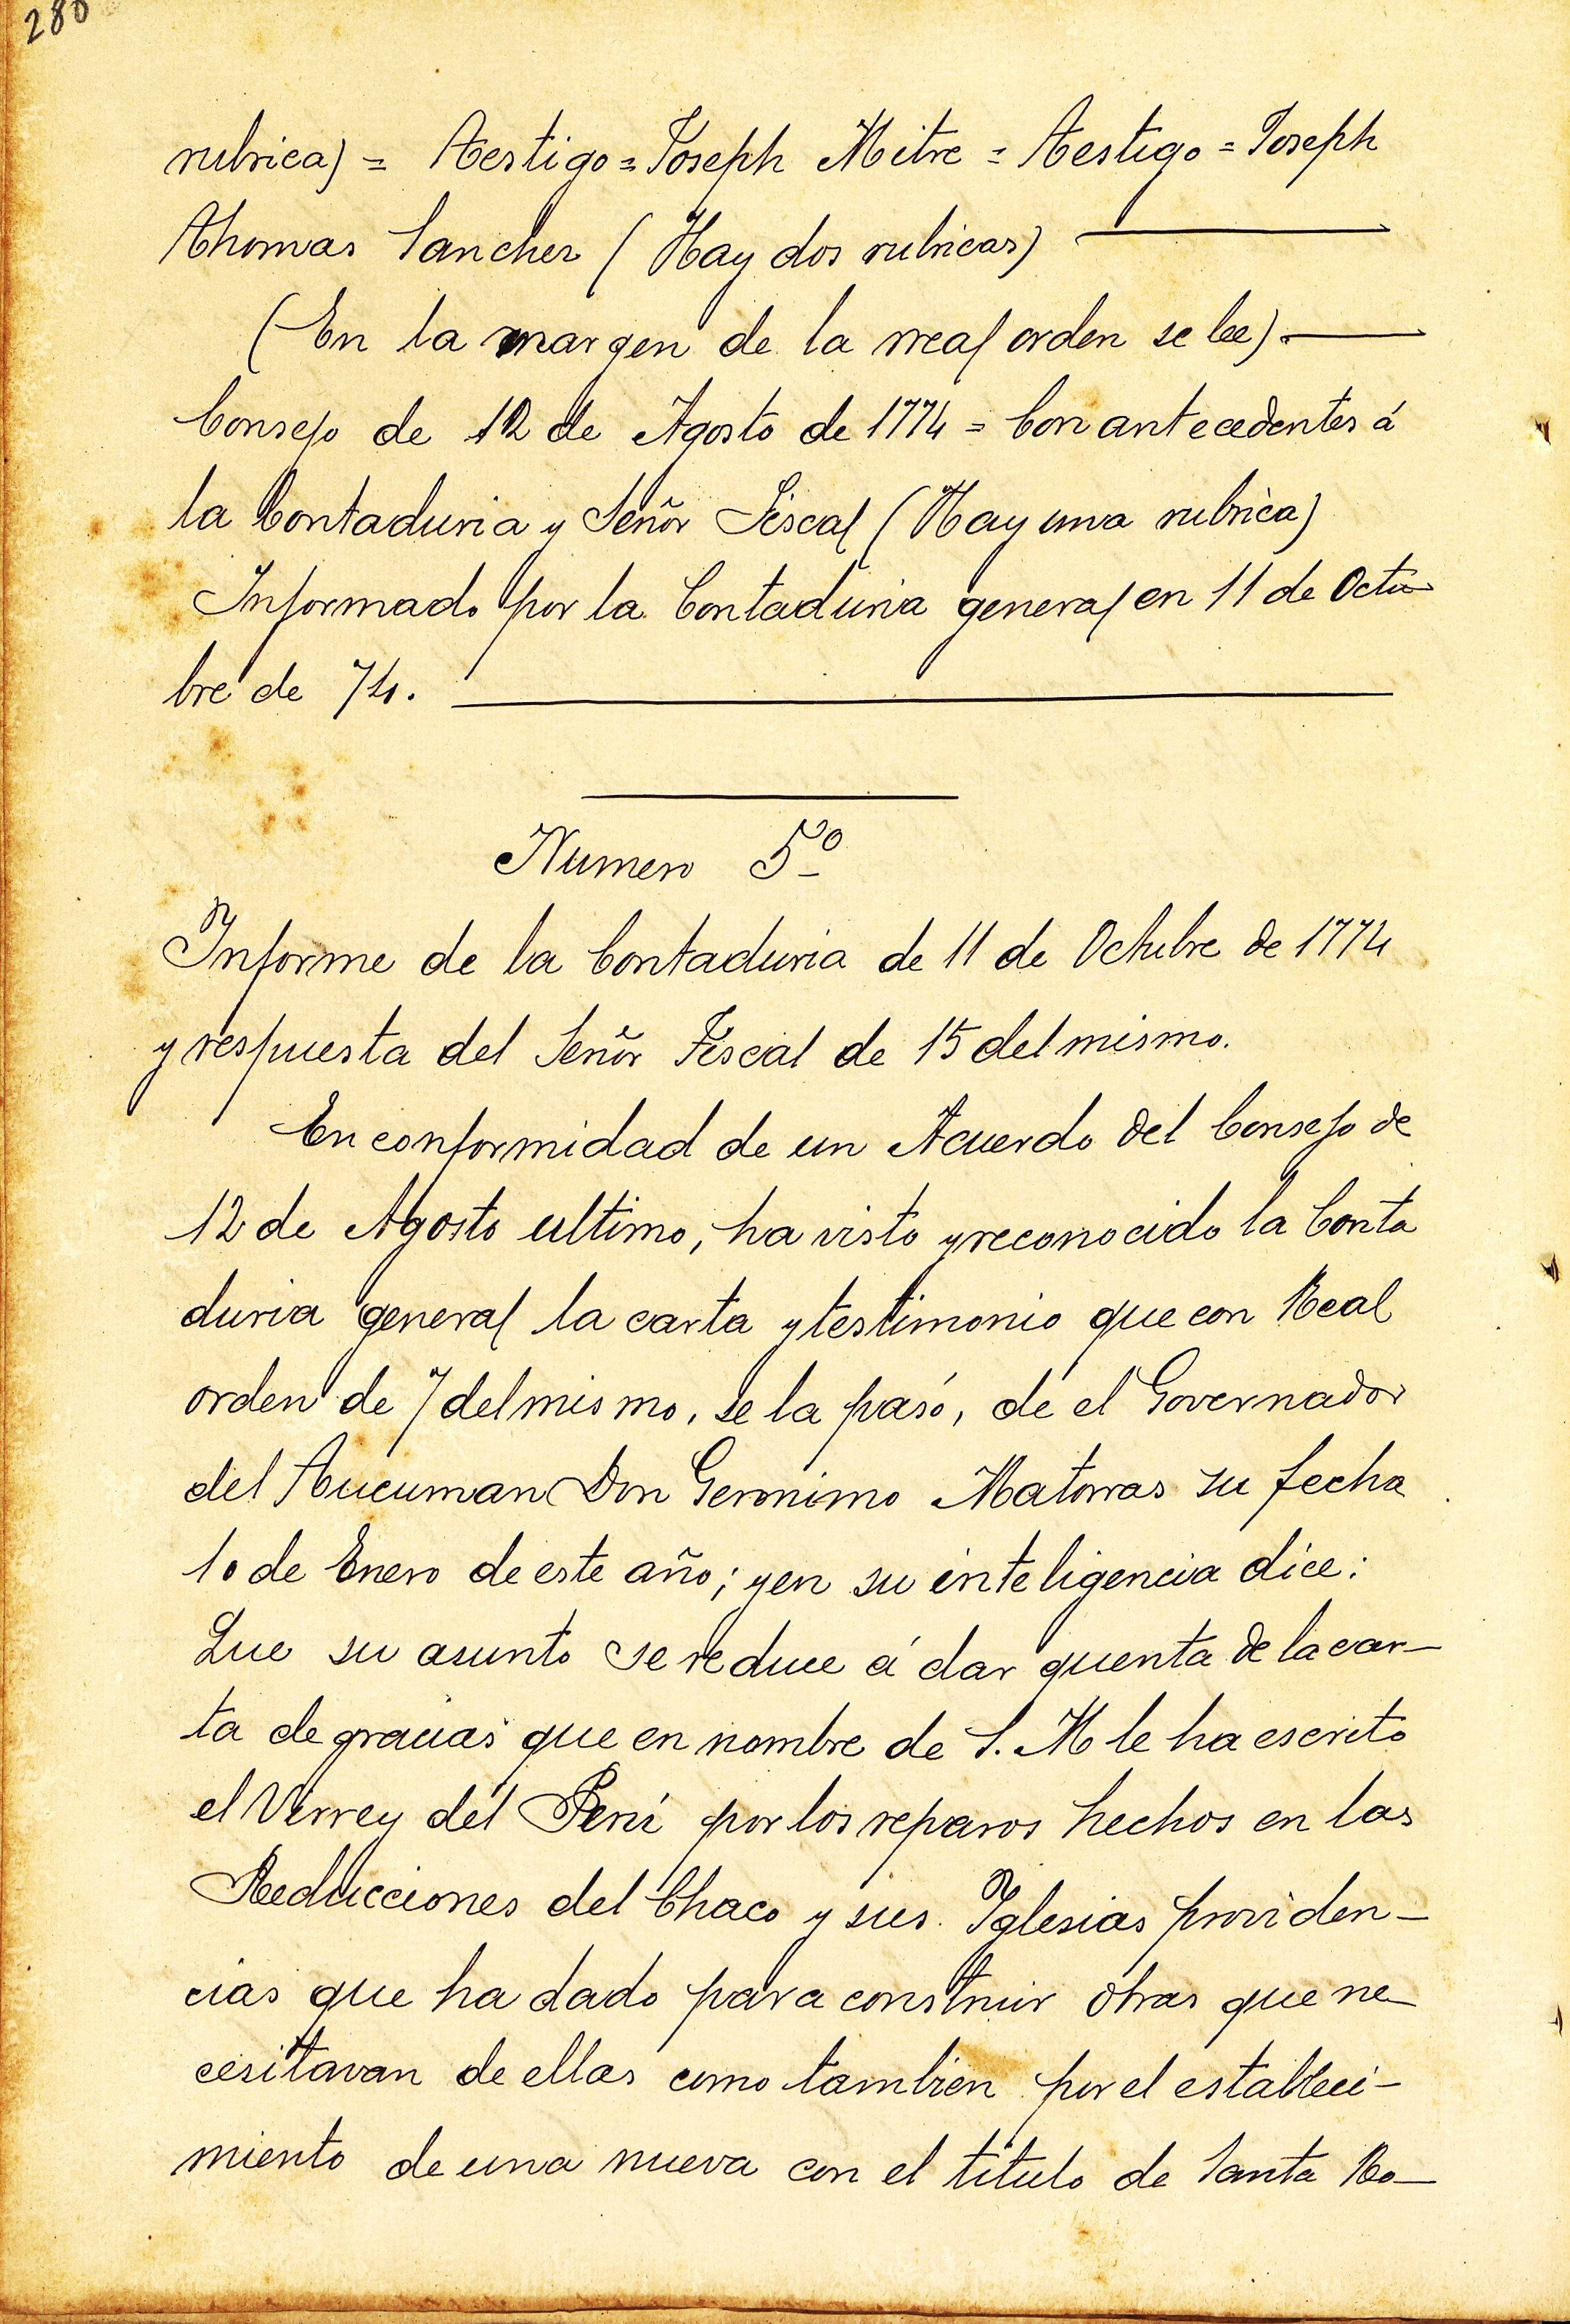 280
rubrica) = Testigo = Joseph Mitre = Testigo = Joseph
Thomas Sanchez (Hay dos rubricas) ———
(En la margen de la rreal orden se lee). ———
Consejo de 12 de Agosto de 1774 = Con antecedentes á
la Contaduria y Señor Fiscal (Hay una rubrica)
Informado por la Contaduria general en 11 de Octu-
bre de 74. ———
Numero 5º
Informe de la Contaduria de 11 de Octubre de 1774
y respuesta del Señor Fiscal de 15 del mismo.
En conformidad de un Acuerdo del Consejo de
12 de Agosto ultimo, ha visto y reconocido la Conta
duria general la carta y testimonio que con Real
orden de 7 del mismo, se la pasó, de el Governador
del Tucuman Don Geronimo Matorras su fecha
10 de Enero de este año; y en su inteligencia dice:
Que su asunto se reduce á dar quenta de la car-
ta de gracias que en nombre de S. M le ha escrito
el Virrey del Perú por los reparos hechos en las
Reducciones del Chaco y sus Iglesias providen-
cias que ha dado para construir otras que ne-
cesitavan de ellas como tambien por el estableci-
miento de una nueva con el titulo de Santa Ro-